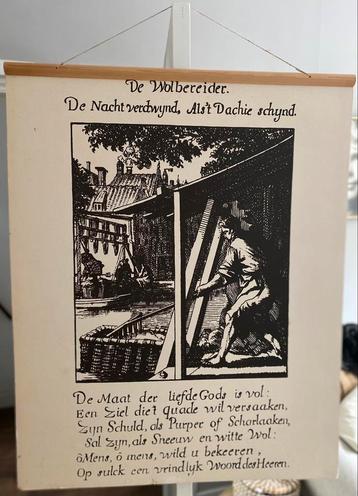 De Wolbereider.
De Nacht verdwynd, Als't Dachie schynd.
De Maat der liefde Gods is vol:
Een Ziel die't quade wil versaaken,
Zyn Schuld, als Purper of Schorlaaken,
Sal Zyn, als Sneeuw en witte Wol:
ô Mens, ô mens, wild u bekeeren,
Op sulck een vrindlyk Woord des Heeren.